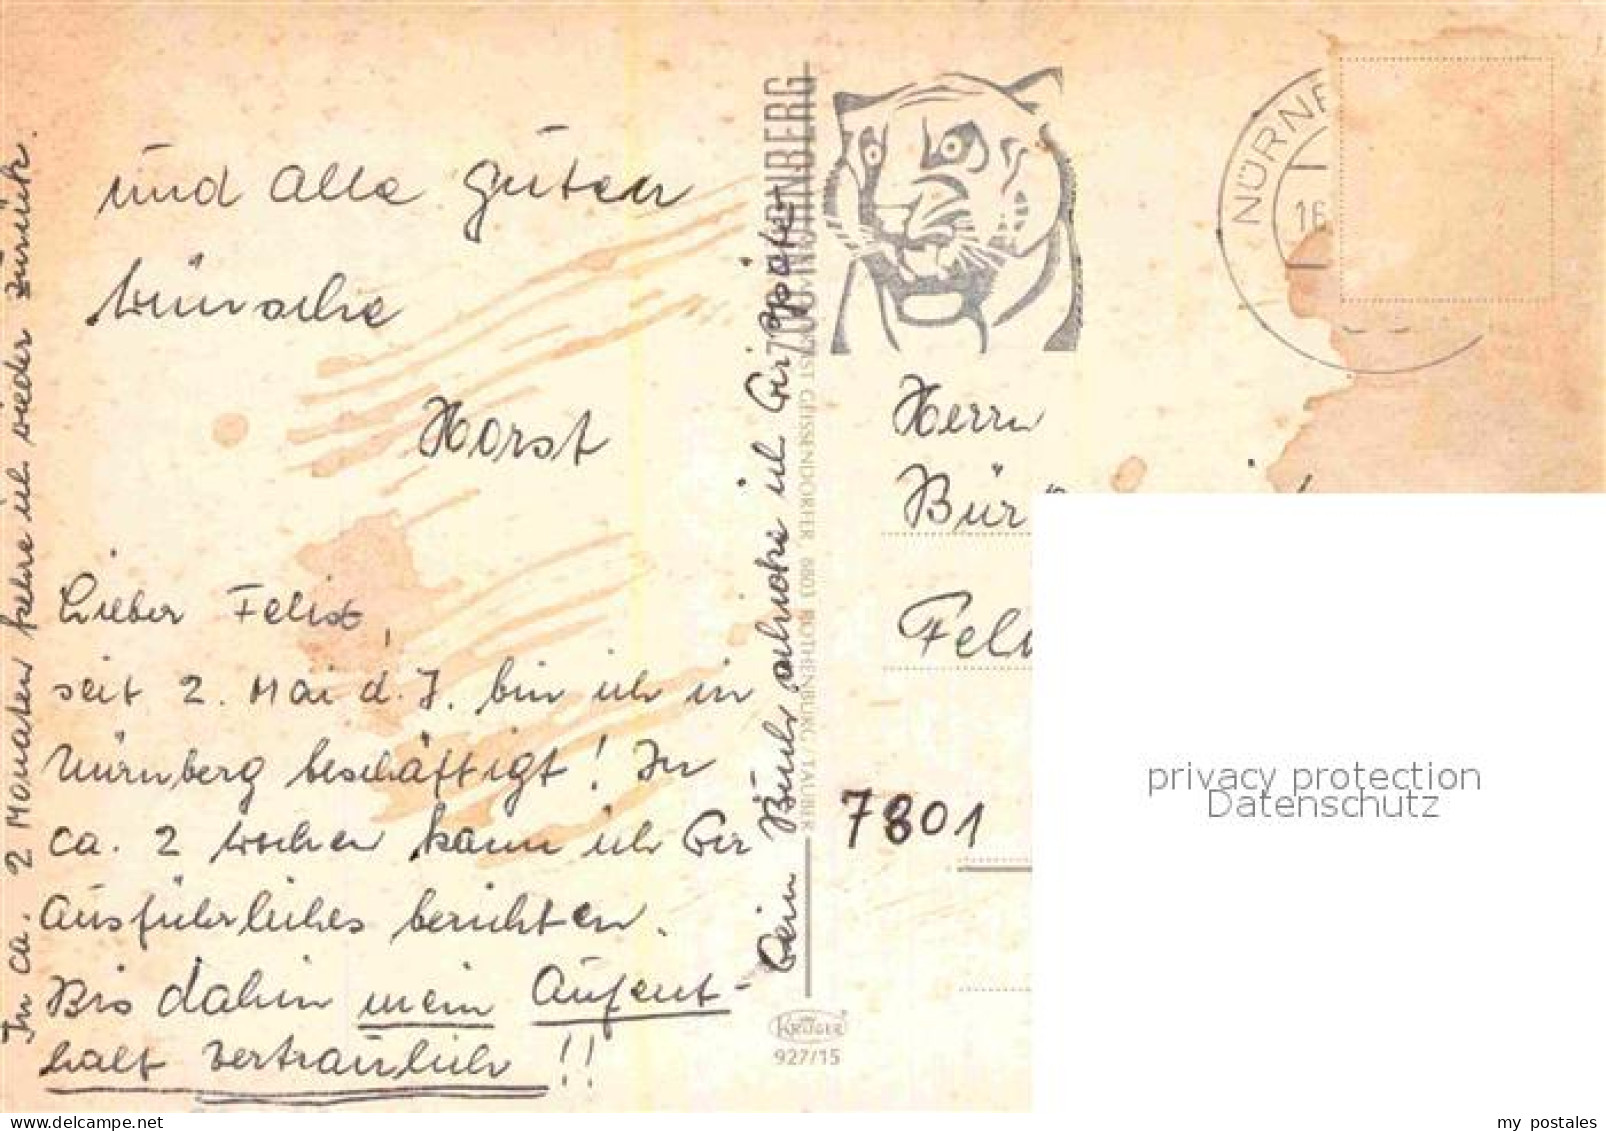 und alle guten
Wünsche
Horst
Lieber Felix,
seit 2. Mai d. J. bin ich in
Nürnberg beschäftigt! In
ca. 2 Wochen kann ich Dir
Ausführliches berichten.
Bis dahin mein Aufent-
halt vertraulich!!
In ca. 2 Monaten kehre ich wieder zurück.
Dein Buch schicke ich Dir später
ZOO IN NÜRNBERG
GEISSENDÖRFER, 8803 ROTHENBURG/TAUBER
KRÜGER
927/15
NÜRNB
16
Herrn
Bür
Feld
7801
privacy protection
Datenschutz
my postales
delcampe.net